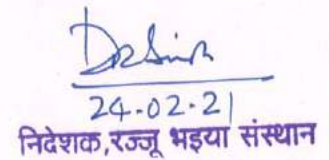 24-02-21
निदेशक, रज्जू भइया संस्थान